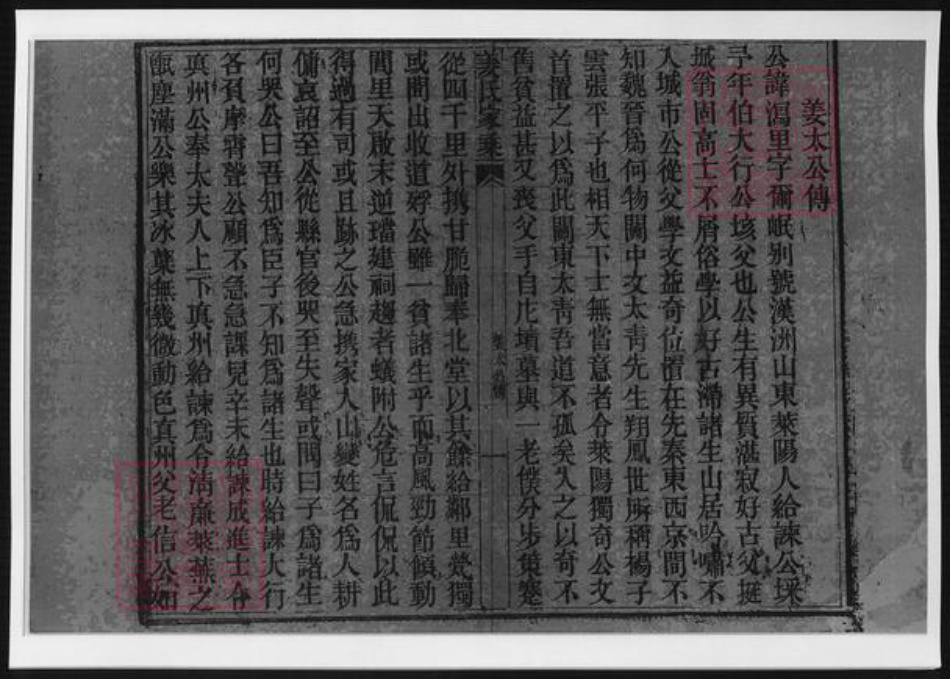 姜太公傳
公諱瀉里字爾岷别號漢洲山東萊陽人給諫公埰
子年伯大行公垓父也公生有異質湛寂好古父挺
城翁固高士不屑俗學以好古潛諸生山居吟嘯不
入城市公從父學文益奇位置在先秦東西京間不
知魏晉爲何物關中文太青先生翔鳳世所稱楊子
雲張平子也相天下士無當意者令萊陽獨奇公文
首置之以爲此關東太青吾道不孤矣久之以奇不
售貧益甚又喪父手自庀墳墓與一老僕分步策蹇
姜氏家乘
姜太公傳
一
從四千里外携甘脆歸奉北堂以其餘給鄰里煢獨
或閒出收道殍公雖一貧諸生乎而高風勁節傾動
閭里天啟末逆璫建祠趨者蟻附公危言侃侃以此
得過有司或且跡之公急携家入山變姓名爲人耕
傭哀詔至公從縣官後哭至失聲或聞曰子爲諸生
何哭公曰吾知爲臣子不知爲諸生也時給諫大行
各負摩霄聲公顧不急急課兒辛未給諫成進士令
真州公奉太夫人上下真州給諫爲令清廉萊蕪之
甑塵滿公樂其冰蘖無幾微動色真州父老信公如